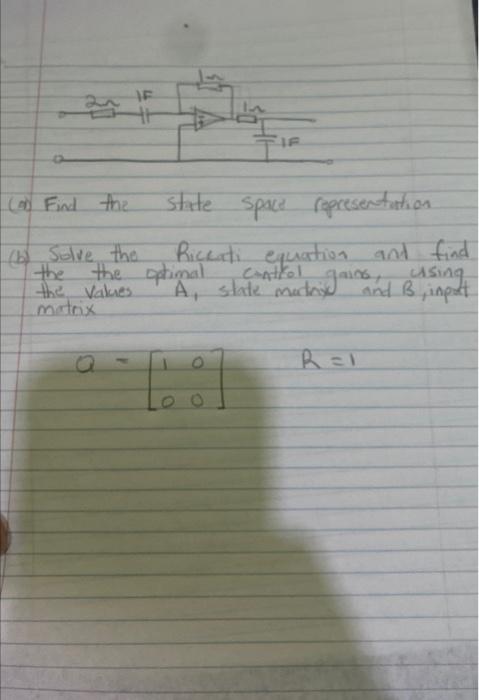 1Ω
2Ω 1F 1Ω
1F
(a) Find the state space representation
(b) Solve the Riccati equation and find
the the optimal control gains, using
the values A, state matrix and B, input
matrix
Q = [1 0
0 0] R = 1